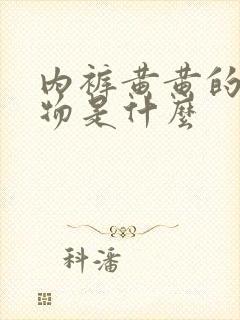 内裤黄黄的
物是什麼
科潘